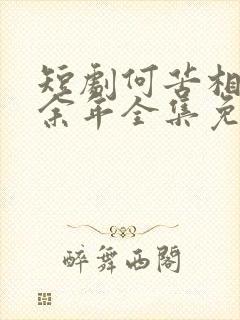 短劇何苦相
余年全集免
醉舞西閣